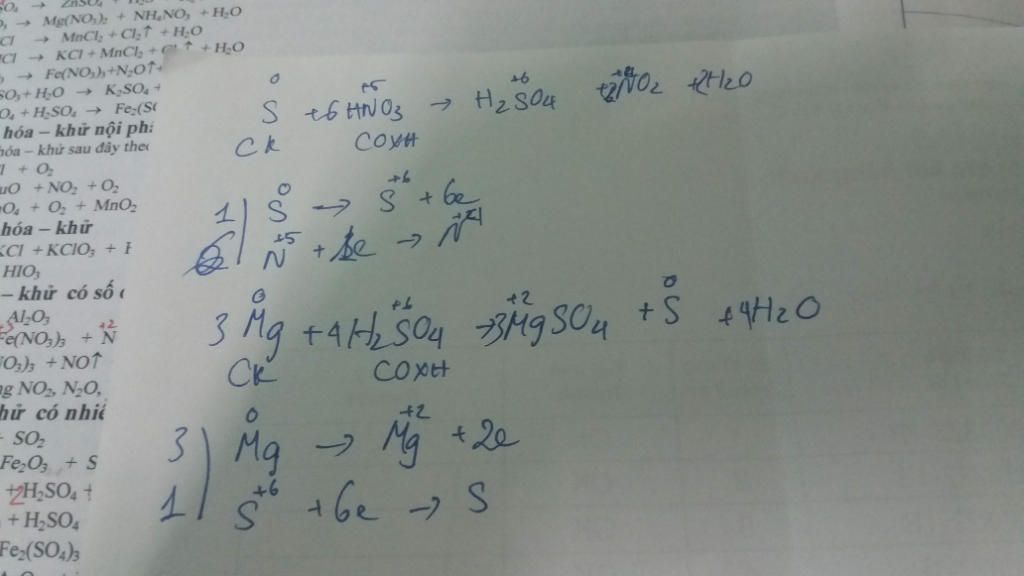 SO₄ → ZnSO₄ +
→ Mg(NO₃)₂ + NH₄NO₃ + H₂O
Cl → MnCl₂ + Cl₂↑ + H₂O
Cl → KCl + MnCl₂ + Cl₂↑ + H₂O
→ Fe(NO₃)₃ + N₂O↑
SO₃ + H₂O → K₂SO₄ +
O₄ + H₂SO₄ → Fe₂(SO
hóa – khử nội ph
hóa – khử sau đây theo
+ O₂
uO + NO₂ + O₂
nO₄ + O₂ + MnO₂
hóa – khử
KCl + KClO₃ +
HIO₃
– khử có số
Al₂O₃
Fe(NO₃)₃ + N +2
NO₃)₃ + NO↑
ng NO₂, N₂O,
khử có nhiề
+ SO₂
Fe₂O₃ + S
+ 2 H₂SO₄ +
+ H₂SO₄
Fe₂(SO₄)₃
0 +5 +6
S + 6HNO₃ → H₂SO₄ NO₂ + 2H₂O
CK COXH
0 +6
1 | S → S + 6e
+5
N + 1e → N
0 +6 +2 0
3Mg + 4H₂SO₄ → 3MgSO₄ + S + 4H₂O
CK COXH
0 +2
3 | Mg → Mg + 2e
+6
1 | S + 6e → S